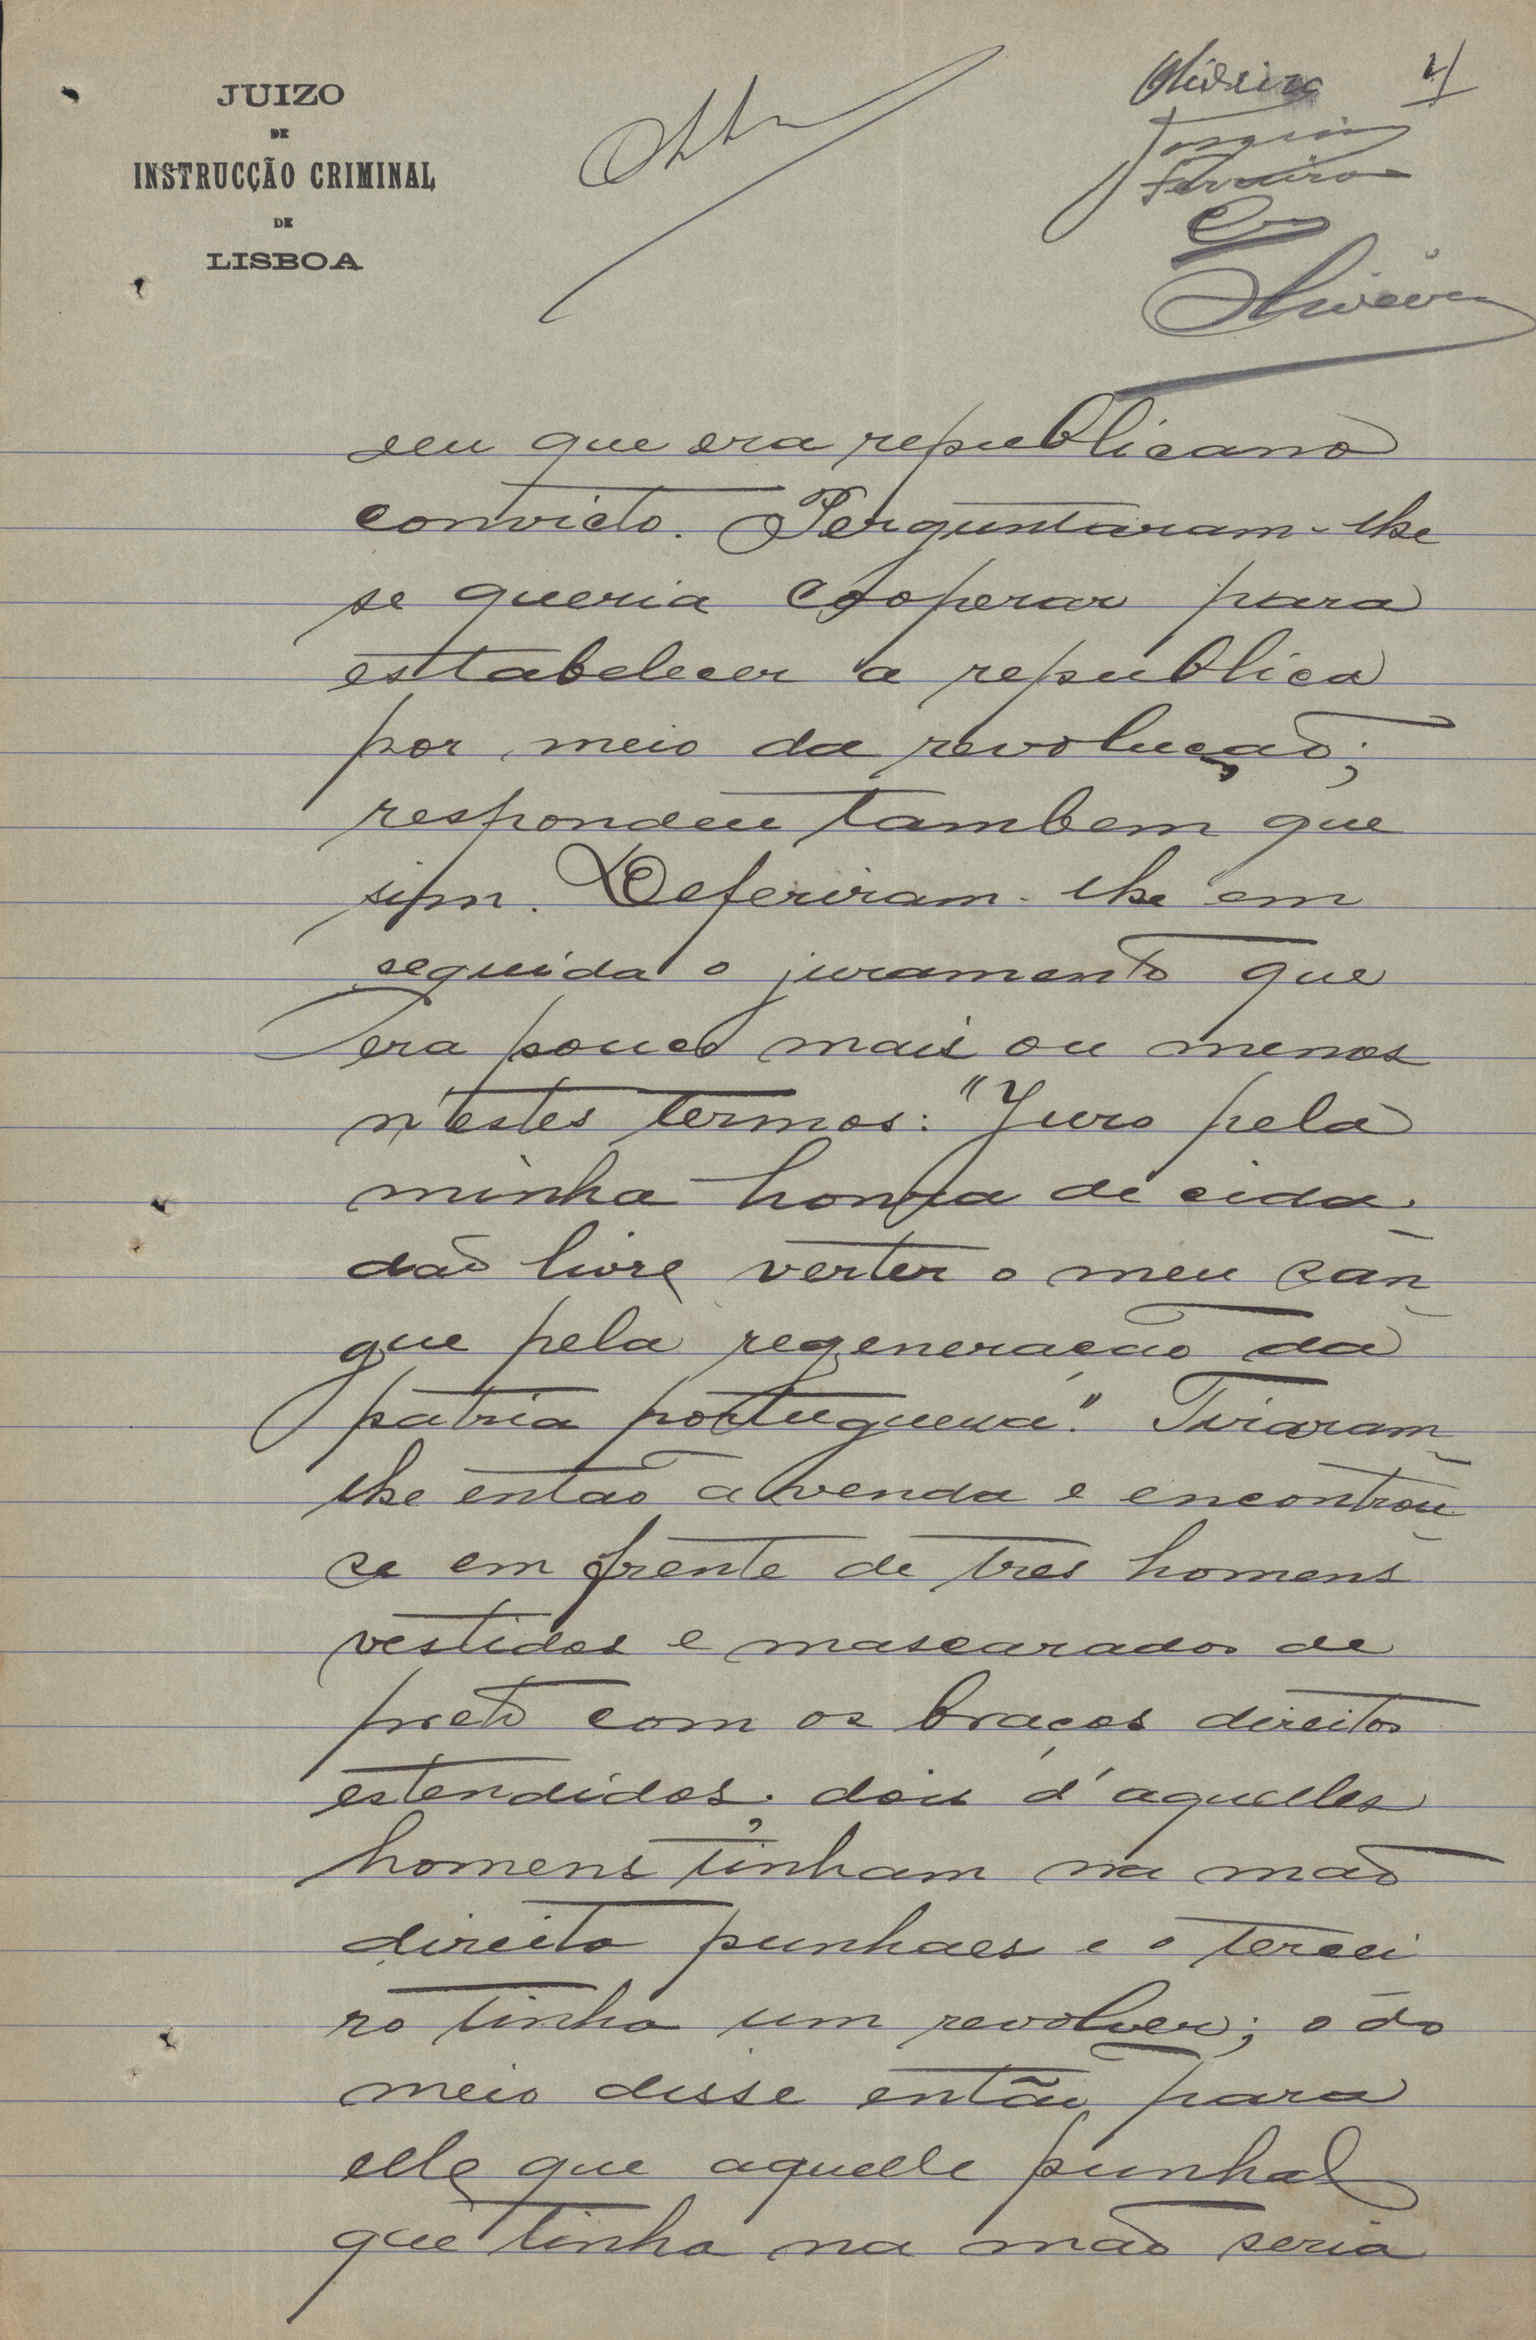 JUIZO
DE
INSTRUCÇÃO CRIMINAL
DE
LISBOA
Oliveira 4
Joaquim
Ferreira
Oliveira
deu que era republicano
convicto. Perguntaram-lhe
se queria cooperar para
estabelecer a republica
por meio da revolução;
respondeu tambem que
sim. Deferiram-lhe em
seguida o juramento que
era pouco mais ou menos
n'estes termos: "Juro pela
minha honra de cida-
dão livre verter o meu san-
gue pela regeneração da
patria portugueza". Tiraram-
lhe então a venda e encontrou-
se em frente de tres homens
vestidos e mascarados de
preto com os braços direitos
estendidos; dois d'aquelles
homens tinham na mão
direita punhaes e o tercei
ro tinha um revolver; o do
meio disse então para
elle que aquelle punhal
que tinha na mão seria